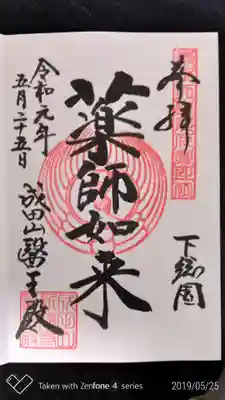 奉拝
下総国
薬師如来
令和元年
五月二十五日
成田山醫王殿
Taken with Zenfone 4 series
2019/05/25